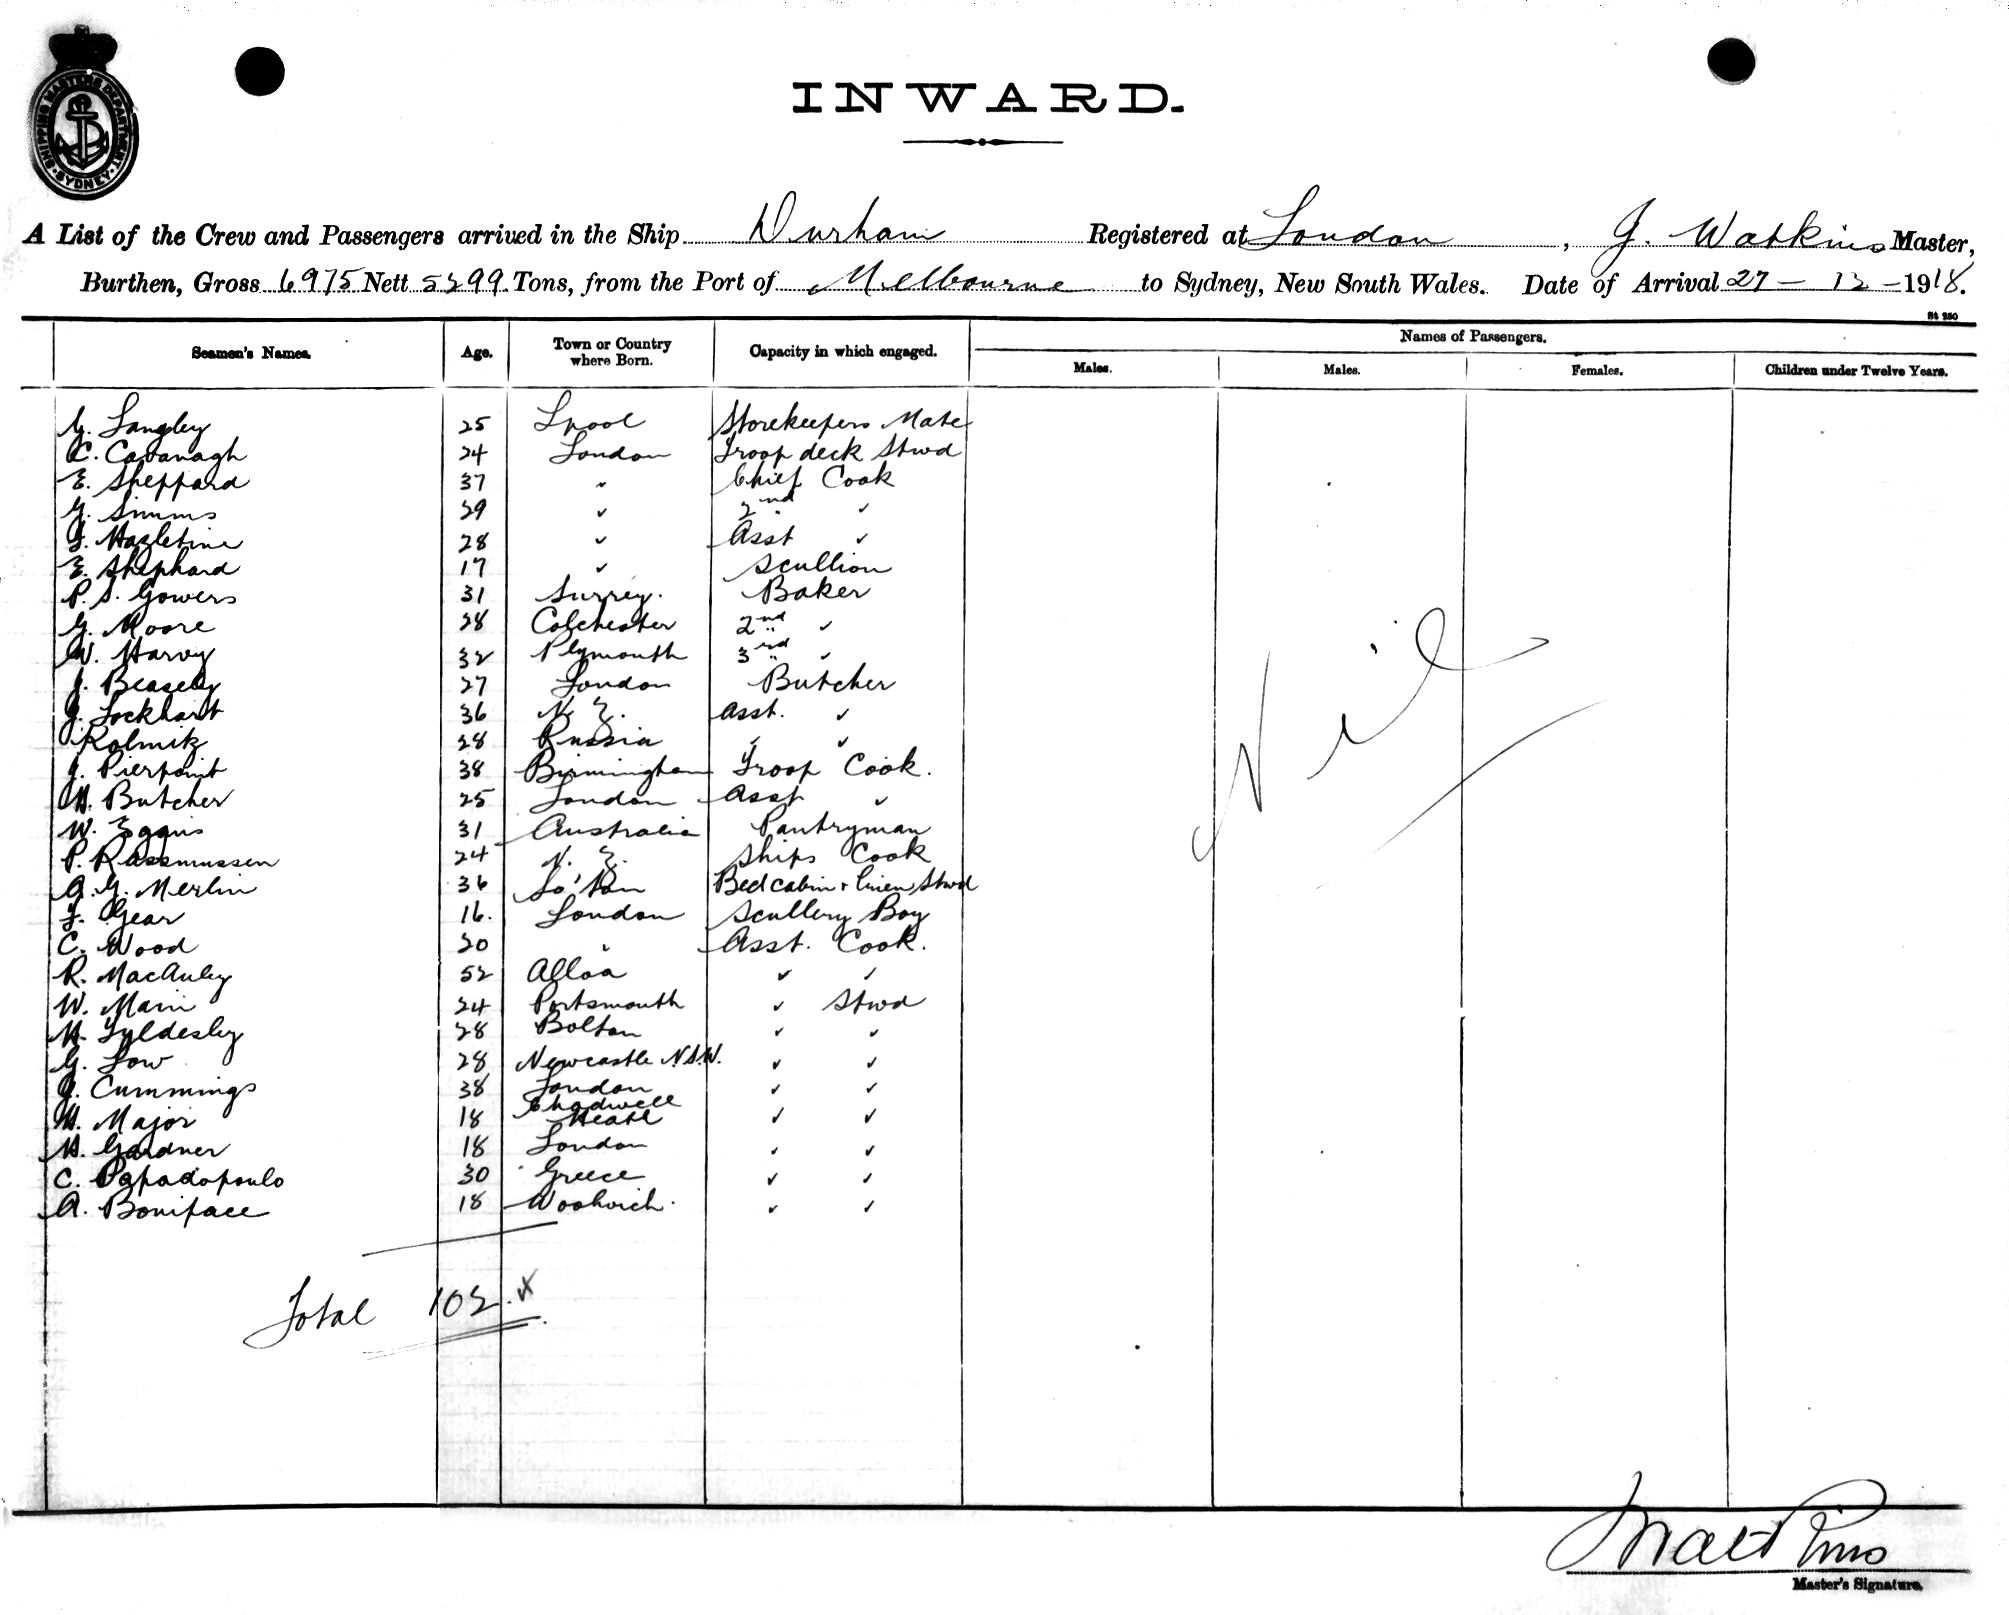 SHIPPING MASTERS DEPARTMENT
SYDNEY
INWARD.
A List of the Crew and Passengers arrived in the Ship Durham Registered at London, J. Watkins Master,
Burthen, Gross 6975 Nett 5299 Tons, from the Port of Melbourne to Sydney, New South Wales. Date of Arrival 27 - 12 - 1918.
St 250
Seamen's Names. Age. Town or Country where Born. Capacity in which engaged. Names of Passengers.
Males. Males. Females. Children under Twelve Years.
G. Langley 25 Lpool Storekeepers Mate
C. Cavanagh 24 London Troop deck Stwd
E. Sheppard 37 " Chief Cook
G. Simms 29 " 2nd "
F. Hazletine 28 " Asst "
E. Shephard 17 " Scullion
P. S. Gowers 31 Surrey. Baker
G. Moore 28 Colchester 2nd "
W. Harvy 32 Plymouth 3rd "
J. Beaseley 27 London Butcher
J. Lockhart 36 N. Z. Asst. "
Kolmik 28 Russia " "
J. Pierpoint 38 Birmingham Troop Cook.
H. Butcher 25 London Asst "
W. Eggins 31 Australia Pantryman
P. Rassmussen 24 N. Z. Ships Cook
A. G. Merlin 36 So'ton Bed cabin & linen Stwd
F. Gear 16. London Scullery Boy
C. Wood 20 " Asst. Cook.
R. MacAuley 52 Alloa " "
W. Main 24 Portsmouth " Stwd
H. Tyldesley 28 Bolton " "
G. Low 28 Newcastle N.S.W. " "
J. Cummings 38 London " "
H. Major 18 Chadwell Heath " "
H. Gardner 18 London " "
C. Papadopoulo 30 Greece " "
A. Boniface 18 Woolwich. " "
Nil
Total 102
J Watkins
Master's Signature.